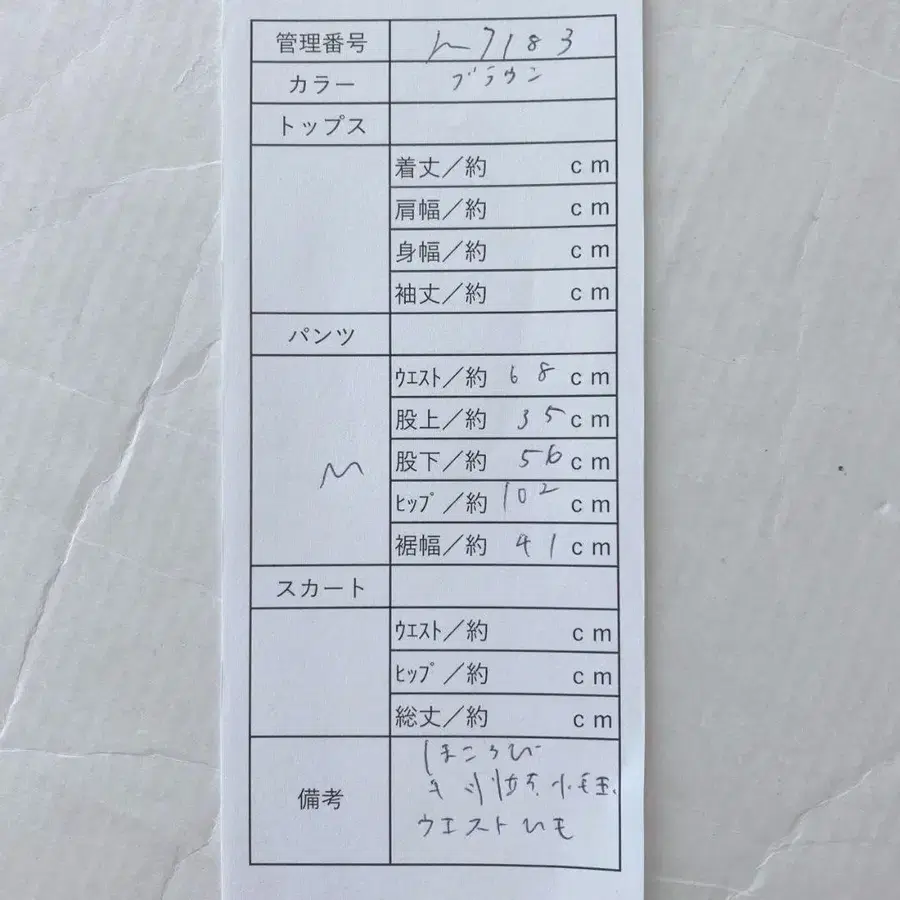 管理番号 h7183
カラー ブラウン
トップス
着丈／約 cm
肩幅／約 cm
身幅／約 cm
袖丈／約 cm
パンツ
ｳｴｽﾄ／約 68 cm
股上／約 35 cm
M 股下／約 56 cm
ﾋｯﾌﾟ／約 102 cm
裾幅／約 41 cm
スカート
ｳｴｽﾄ／約 cm
ﾋｯﾌﾟ／約 cm
総丈／約 cm
ほころび
備考 小毛玉、
ウエストひも